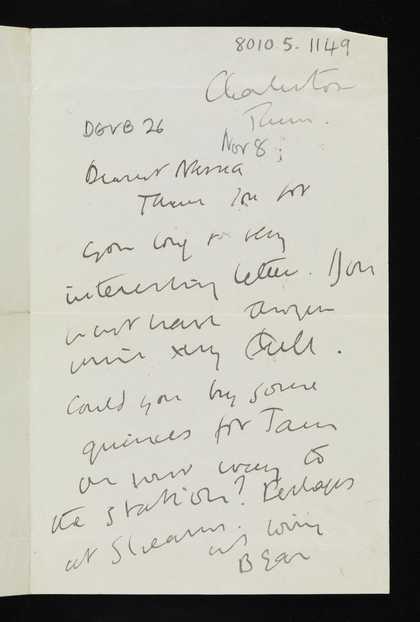 8010.5.1149
Charleston
Thurs.
DGVB 26
Nov 8
Dearest Nessa
Thank you for
your long & very
interesting letter. You
must have
very dull.
Could you buy some
quinces for Jam
on your way to
the station? Perhaps
at
Bear